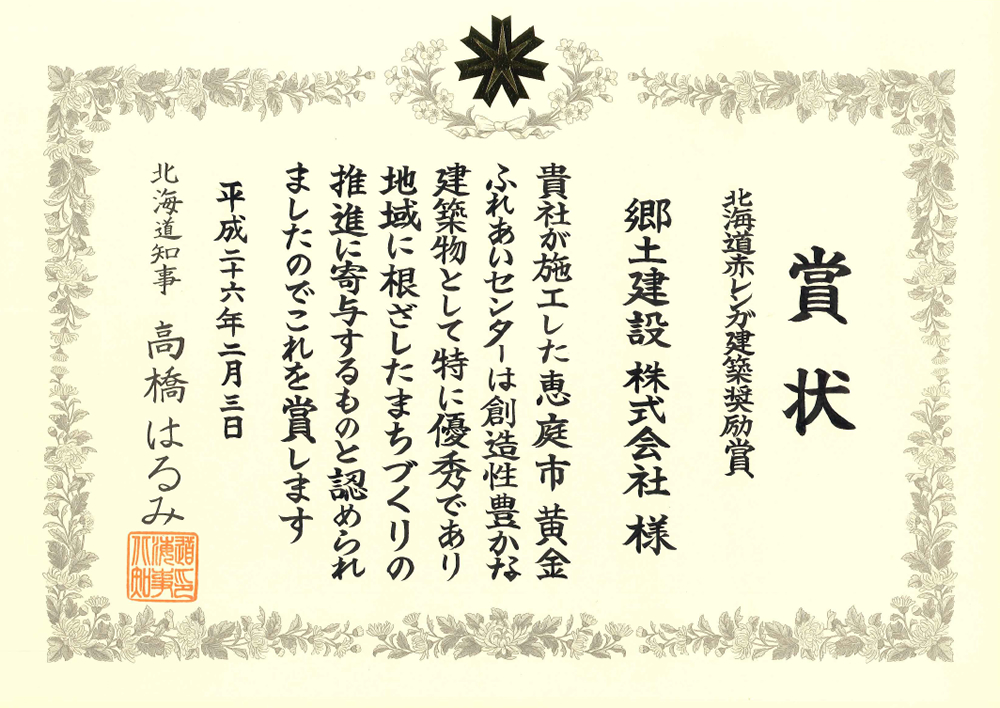 賞状
北海道赤レンガ建築奨励賞
郷土建設 株式会社 様
貴社が施工した恵庭市黄金
ふれあいセンターは創造性豊かな
建築物として特に優秀であり
地域に根ざしたまちづくりの
推進に寄与するものと認められ
ましたのでこれを賞します
平成二十六年二月三日
北海道知事 高橋はるみ
北海道知事印